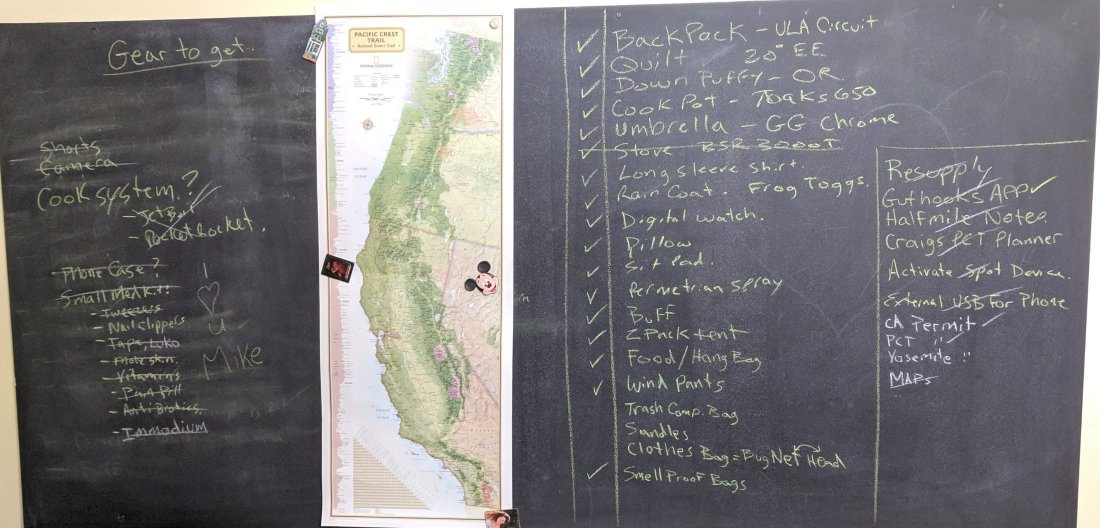 Gear to get
Shorts
Camera
Cook system?
- Jet Boil
- Pocket Rocket.
Phone Case?
Small Med Kit:
- Tweezers
- Nail Clippers
- Tape, Luko
- Mole skin
- Vitamins
- Pain Pill
- Anti Biotics.
- Immodium
I
♡
U
Mike
PACIFIC CREST
TRAIL
National Scenic Trail
NATIONAL GEOGRAPHIC
PACIFIC
OCEAN
PACIFIC
OCEAN
✓ BackPack - ULA Circuit
✓ Quilt 20° EE
✓ Down Puffy - OR.
✓ Cook Pot - Toaks 650
✓ Umbrella - GG Chrome
✓ Stove BSR 3000T
✓ Long sleeve shirt.
✓ Rain Coat - Frog Toggs.
✓ Digital watch.
✓ Pillow
✓ Sit Pad.
✓ Permetrian spray
✓ Buff
✓ ZPack tent
✓ Food/Hang Bag
✓ Wind Pants
Trash Comp. Bag
Sandles
Clothes Bag = Bug Net Head
✓ Smell Proof Bags
Resupply
Guthooks App ✓
Halfmile Notes
Craigs PCT Planner
Activate Spot Device.
External USB For Phone
CA Permit ✓
PCT "
Yosemite "
MAPS